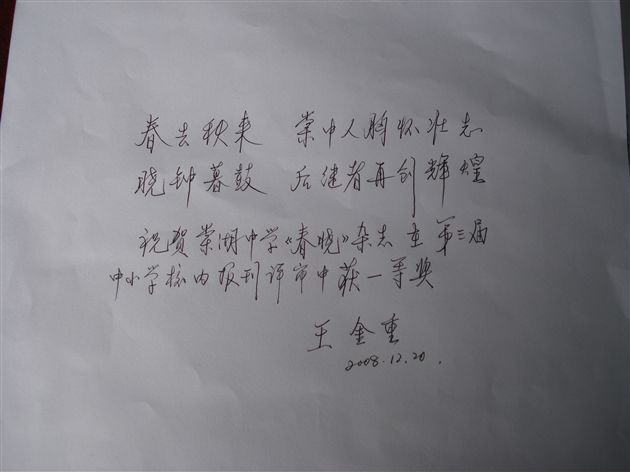 春去秋来 棠中人胸怀壮志
晓钟暮鼓 后继者再创辉煌
祝贺棠湖中学《春晓》杂志在第三届
中小学校内报刊评审中获一等奖
王金重
2008.12.20.